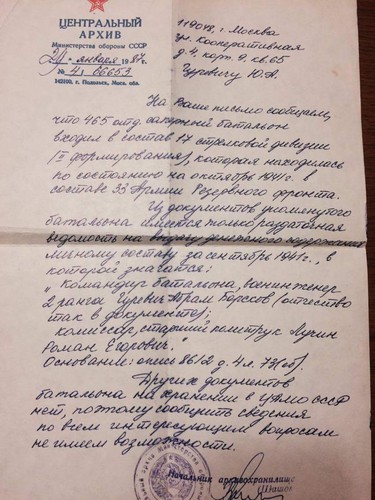 ЦЕНТРАЛЬНЫЙ
АРХИВ
Министерства обороны СССР
29 января 1987 г.
№ 41 06653
142100, г. Подольск, Моск. обл.
119048, г. Москва
ул. Кооперативная
д. 4, корп. 9, кв. 65
Гуревичу Ю.А.
На Ваше письмо сообщаем,
что 465 отд. саперный батальон
входил в состав 17 стрелковой дивизии
(II формирования), которая находилась
по состоянию на октябрь 1941 г. в
составе 33 Армии Резервного фронта.
Из документов упомянутого
батальона имеется только раздаточная
ведомость на выдачу денежного содержания
личному составу за сентябрь 1941 г., в
которой значатся:
„Командир батальона, военинженер
2 ранга Гуревич Абрам Борсков (отчество
так в документе);
комиссар, старший политрук Лукин
Роман Егорович."
Основание: опись 8612 д. 4 л. 73 (об).
Других документов
батальона на хранении в ЦАМО СССР
нет, поэтому сообщить сведения
по всем интересующим вопросам
не имеем возможности.
Начальник архивохранилища